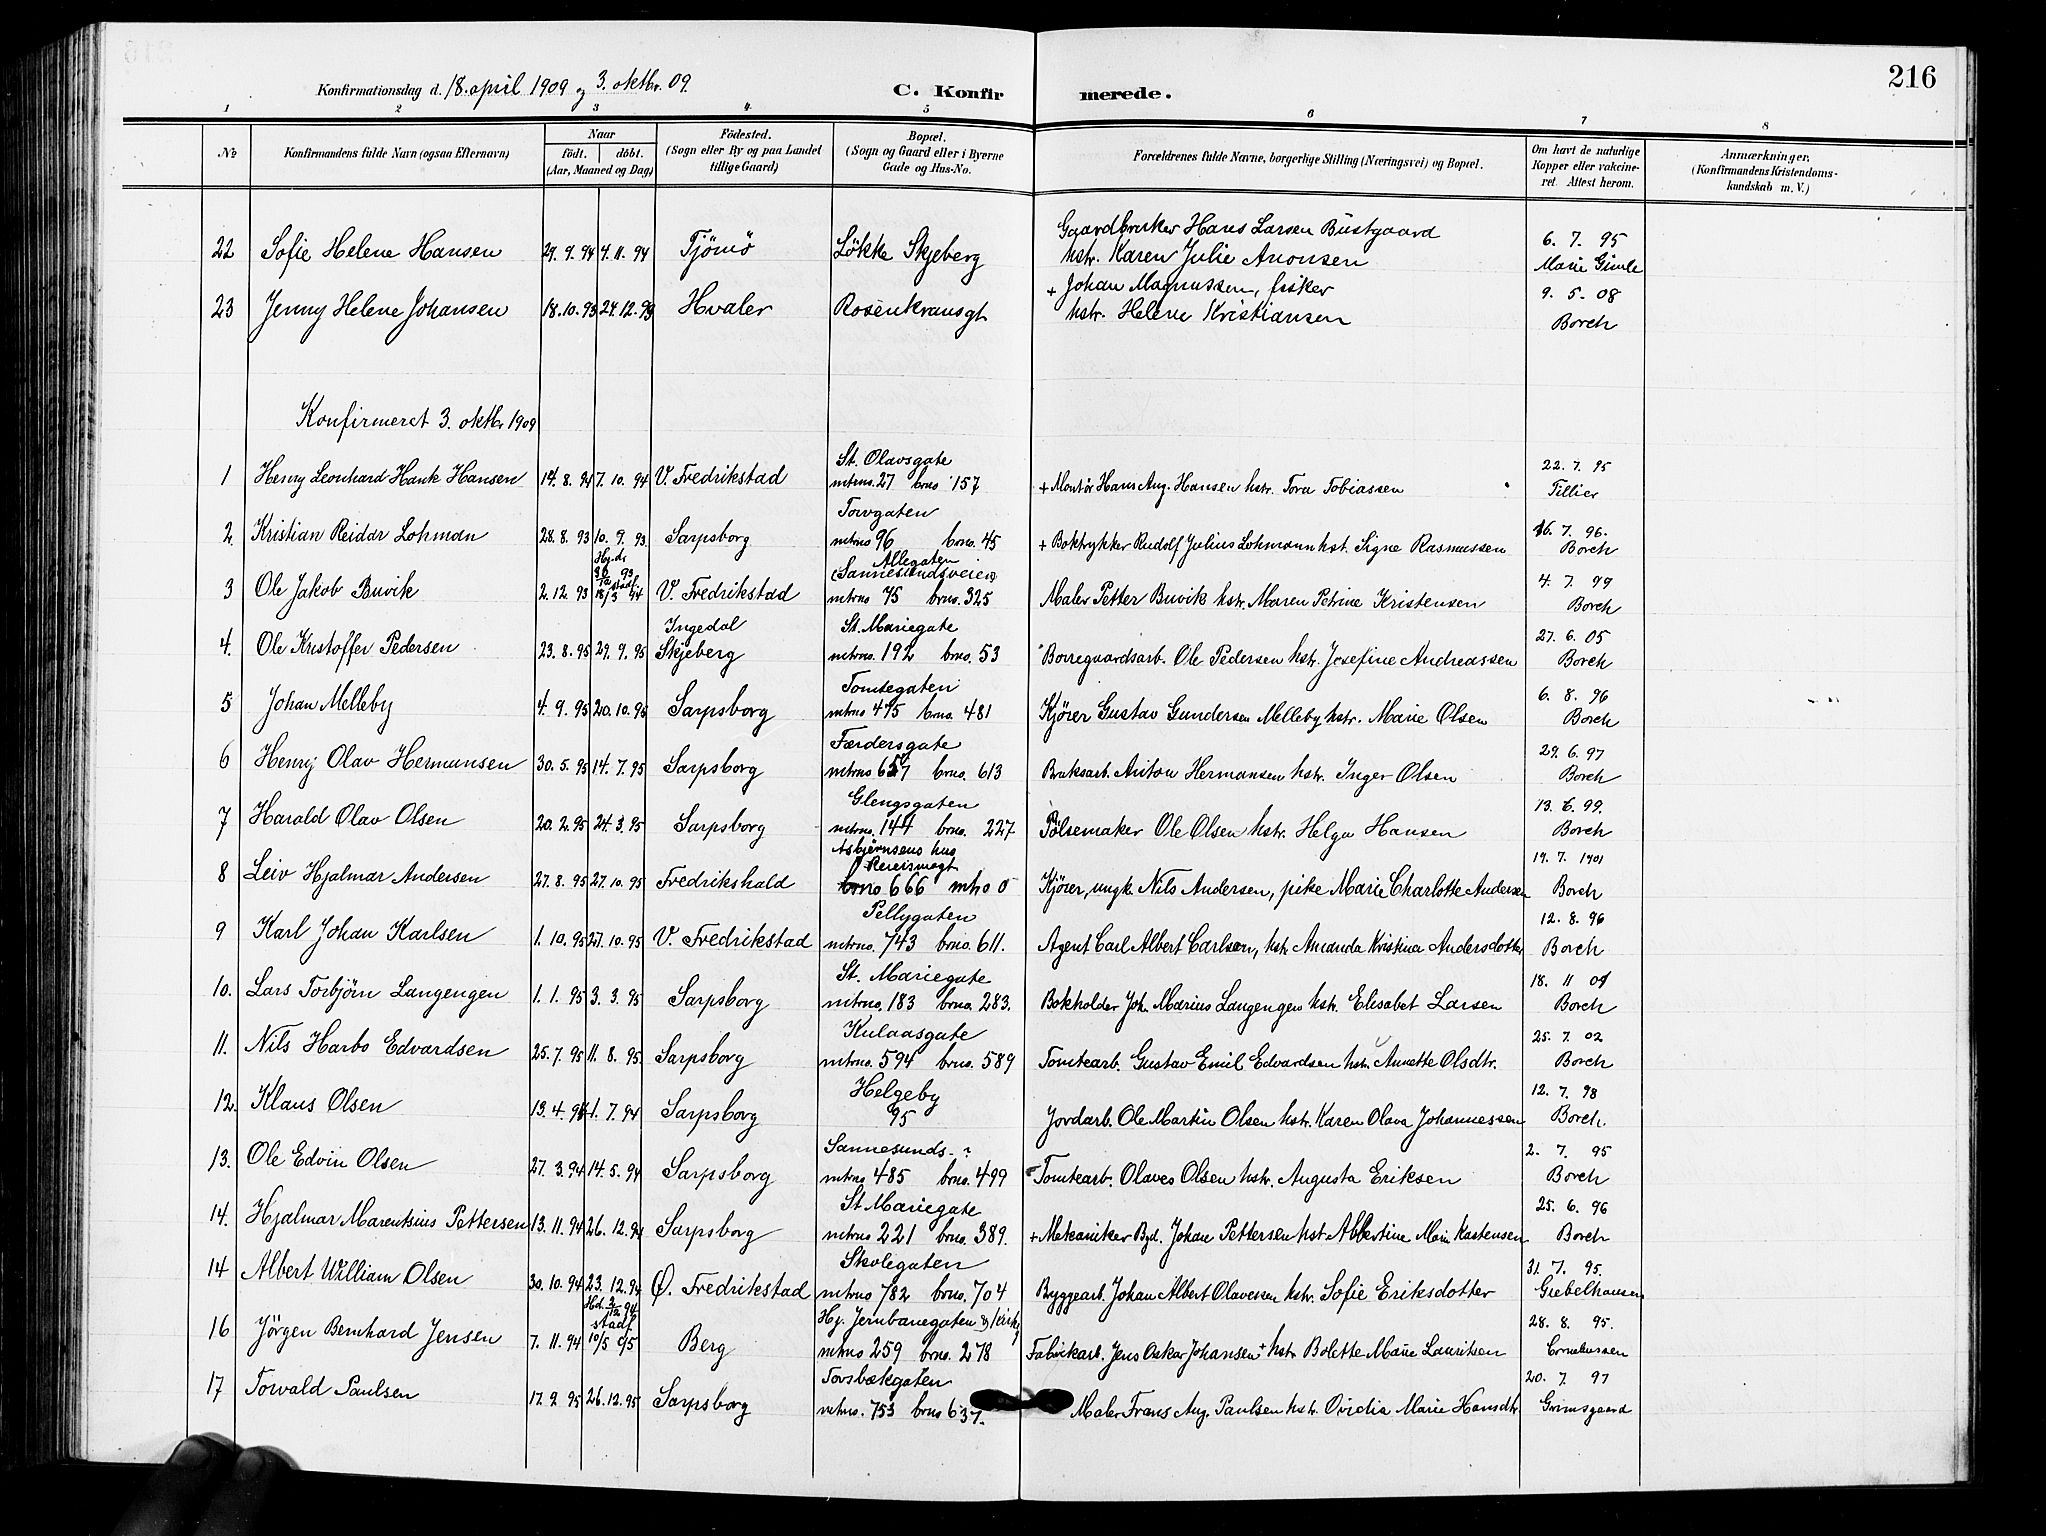 216
Konfirmationsdag d. 18. april 1909 og 3. oktbr. 09.
C. Konfirmerede.
1 2 3 4 5 6 7 8
No Konfirmandens fulde Navn (ogsaa Efternavn) Naar födt. döbt. (Aar, Maaned og Dag) Födested. (Sogn eller By og paa Landet tillige Gaard) Bopæl. (Sogn og Gaard eller i Byerne Gade og Hus-No. Forældrenes fulde Navne, borgerlige Stilling (Næringsvei) og Bopæl. Om havt de naturlige Kopper eller vakcineret. Attest herom. Anmærkninger. (Konfirmandens Kristendomskundskab m. V.)
22 Sofie Helene Hansen 29. 9. 94 4. 11. 94 Tjömö Løkke Skjeberg Gaardbruker Hans Larsen Bustgaard hstr. Karen Julie Aronsen 6. 7. 95 Marie Gimle
23 Jenny Helene Johansen 18. 10. 93 24. 12. 93 Hvaler Rosenkransgt + Johan Magnussen, fisker hstr. Helene Kristiansen 9. 5. 08 Borch
Konfirmeret 3. oktbr 1909
1 Henry Leonhard Hauk Hansen 14. 8. 94 7. 10. 94 V. Fredrikstad St. Olavsgate mtrno. 27 brno 157 + Montör Hans Aug. Hansen hstr. Tora Tobiassen 22. 7. 95 Tillier
2. Kristian Reidar Lohman 28. 8. 93 10. 9. 93. Sarpsborg Torvgaten mtrno 96 brno. 45 + Boktrykker Rudolf Julius Lohmann hst. Signe Rasmussen 16. 7. 96. Borch
3 Ole Jakob Buvik 2. 12. 93 Hj.dr 93 stadf. 18/3 94 V. Fredrikstad Allegaten (Sannesundsveien) mtrno 75 brno. 325 Maler Petter Buvik hstr. Maren Petrine Kristensen 4. 7. 99 Borch
4. Ole Kristoffer Pedersen 23. 8. 95 29. 9. 95 Ingedal Skjeberg St. Mariegate mtrno. 192 brno. 53 Borregaardsarb. Ole Pedersen hstr. Josefine Andreassen 27. 6. 05 Borch
5 Johan Melleby 4. 9. 95 20. 10. 95 Sarpsborg Tomtegaten mtrno 475 brno. 481 Kjører Gustav Gundersen Melleby hstr. Marie Olsen 6. 8. 96 Borch
6 Henry Olav Hermansen 30. 5. 95 14. 7. 95 Sarpsborg Færdersgate mtrno 657 brno. 613 Bruksarb. Anton Hermansen hstr. Inger Olsen 29. 6. 97 Borch
7 Harald Olav Olsen 20. 2. 95 24. 3. 95 Sarpsborg Glengsgaten mtrno. 144 brno. 227 Pølsemaker Ole Olsen hstr. Helga Hansen 13. 6. 99. Borch
8 Leiv Hjalmar Andersen 27. 8. 95 27. 10. 95 Fredrikshald Asbjørnsens hus brno 666 mtrno 0 Kjører, ungk. Nils Andersen, pike Marie Charlotte Andersen 19. 7. 1901 Borch
9 Karl Johan Karlsen 1. 10. 95 27. 10. 95 V. Fredrikstad Pellygaten mtrno. 743 brno. 611. Agent Carl Albert Carlson, hstr Amanda Kristina Andersdotter 12. 8. 96 Borch
10. Lars Torbjörn Langengen 1. 1. 95 3. 3. 95 Sarpsborg St. Mariegate mtrno. 183 brno. 283. Bokholder Joh. Marius Langengen hstr. Elisabet Larsen 18. 11 Borch
11. Nils Harbo Edvardsen 25. 7. 95 11. 8. 95 Sarpsborg Kulaasgate mtrno. 594 brno. 589 Tomtearb. Gustav Emil Edvardsen hstr. Annette Olsdtr. 25. 7. 02 Borch
12. Klaus Olsen 13. 4. 94 1. 7. 94 Sarpsborg Helgeby 95 Jordarb. Ole Martin Olsen hstr. Karen Olava Johannessen 12. 7. 98 Borch.
13. Ole Edvin Olsen 27. 3. 94 14. 5. 94 Sarpsborg Sannesunds - ? mtrno 485 brno. 499 Tomtearb. Olaves Olsen hstr. Augusta Eriksen 2. 7. 95 Borch
14. Hjalmar Marentsius Pettersen 13. 11. 94 26. 12. 94 Sarpsborg St Mariegate mtrno 221 brno. 389. + Mekaniker Johan Pettersen hst Albertine Marie Kastensen 25. 6. 96 Borch
14 Albert William Olsen 30. 10. 94 23. 12. 94 Ø. Fredrikstad Skolegaten mtrno 782 brno. 704 Byggearb. Johan Albert Olavesen hstr. Sofie Eriksdotter 31. 7. 95. Giebelhausen
16 Jörgen Bernhard Jensen 7. 11. 94 Hd. 94 stadf. 10/5 95 Berg Hj. Jernbanegaten & Kirkeg mtrno 259 brno. 278 Fabrikarb. Jens Oskar Johansen + hstr Bolette Marie Lauritsen 28. 8. 95. Corneliussen
17 Torvald Paulsen 17. 9 95 26. 12. 95 Sarpsborg Torsbækgaten mtrno. 753 brno 637. Maler Frans Aug. Paulsen hstr. Ovidia Marie Hansdtr. 20. 7. 97 Grimsgaard